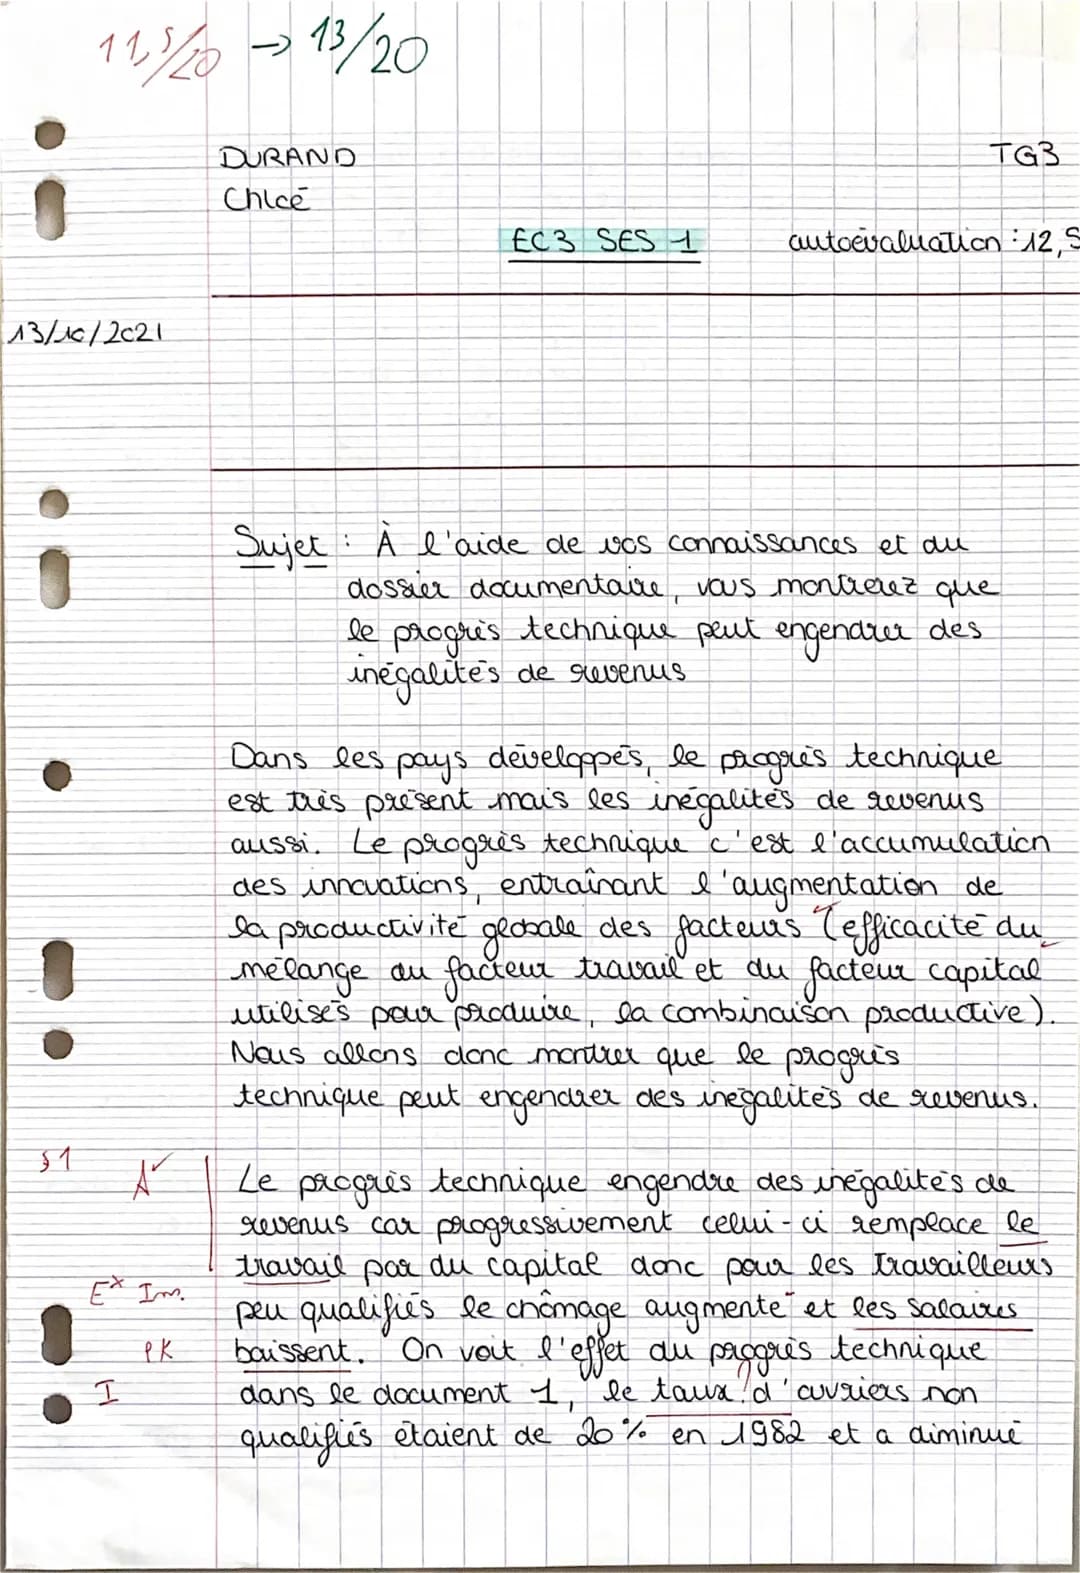 11,5/20 → 13/20
DURAND
TG3
Chloé
EC3 SES 1
autoévaluation : 12,5
13/10/2021
Sujet : À l'aide de vos connaissances et du
dossier documentaire, vous montrerez que
le progrès technique peut engendrer des
inégalités de revenus
Dans les pays développés, le progrès technique
est très présent mais les inégalités de revenus
aussi. Le progrès technique c'est l'accumulation
des innovations, entraînant l'augmentation de
la productivité globale des facteurs (efficacité du
mélange du facteur travail et du facteur capital
utilisés pour produire, la combinaison productive).
Nous allons donc montrer que le progrès
technique peut engendrer des inégalités de revenus.
§1
A
Le progrès technique engendre des inégalités de
revenus car progressivement celui-ci remplace le
travail par du capital donc pour les travailleurs
Ex Im.
peu qualifiés le chômage augmente et les salaires
PK
baissent. On voit l'effet du progrès technique
I
dans le document 1, le taux d'ouvriers non
qualifiés étaient de 20% en 1982 et a diminué